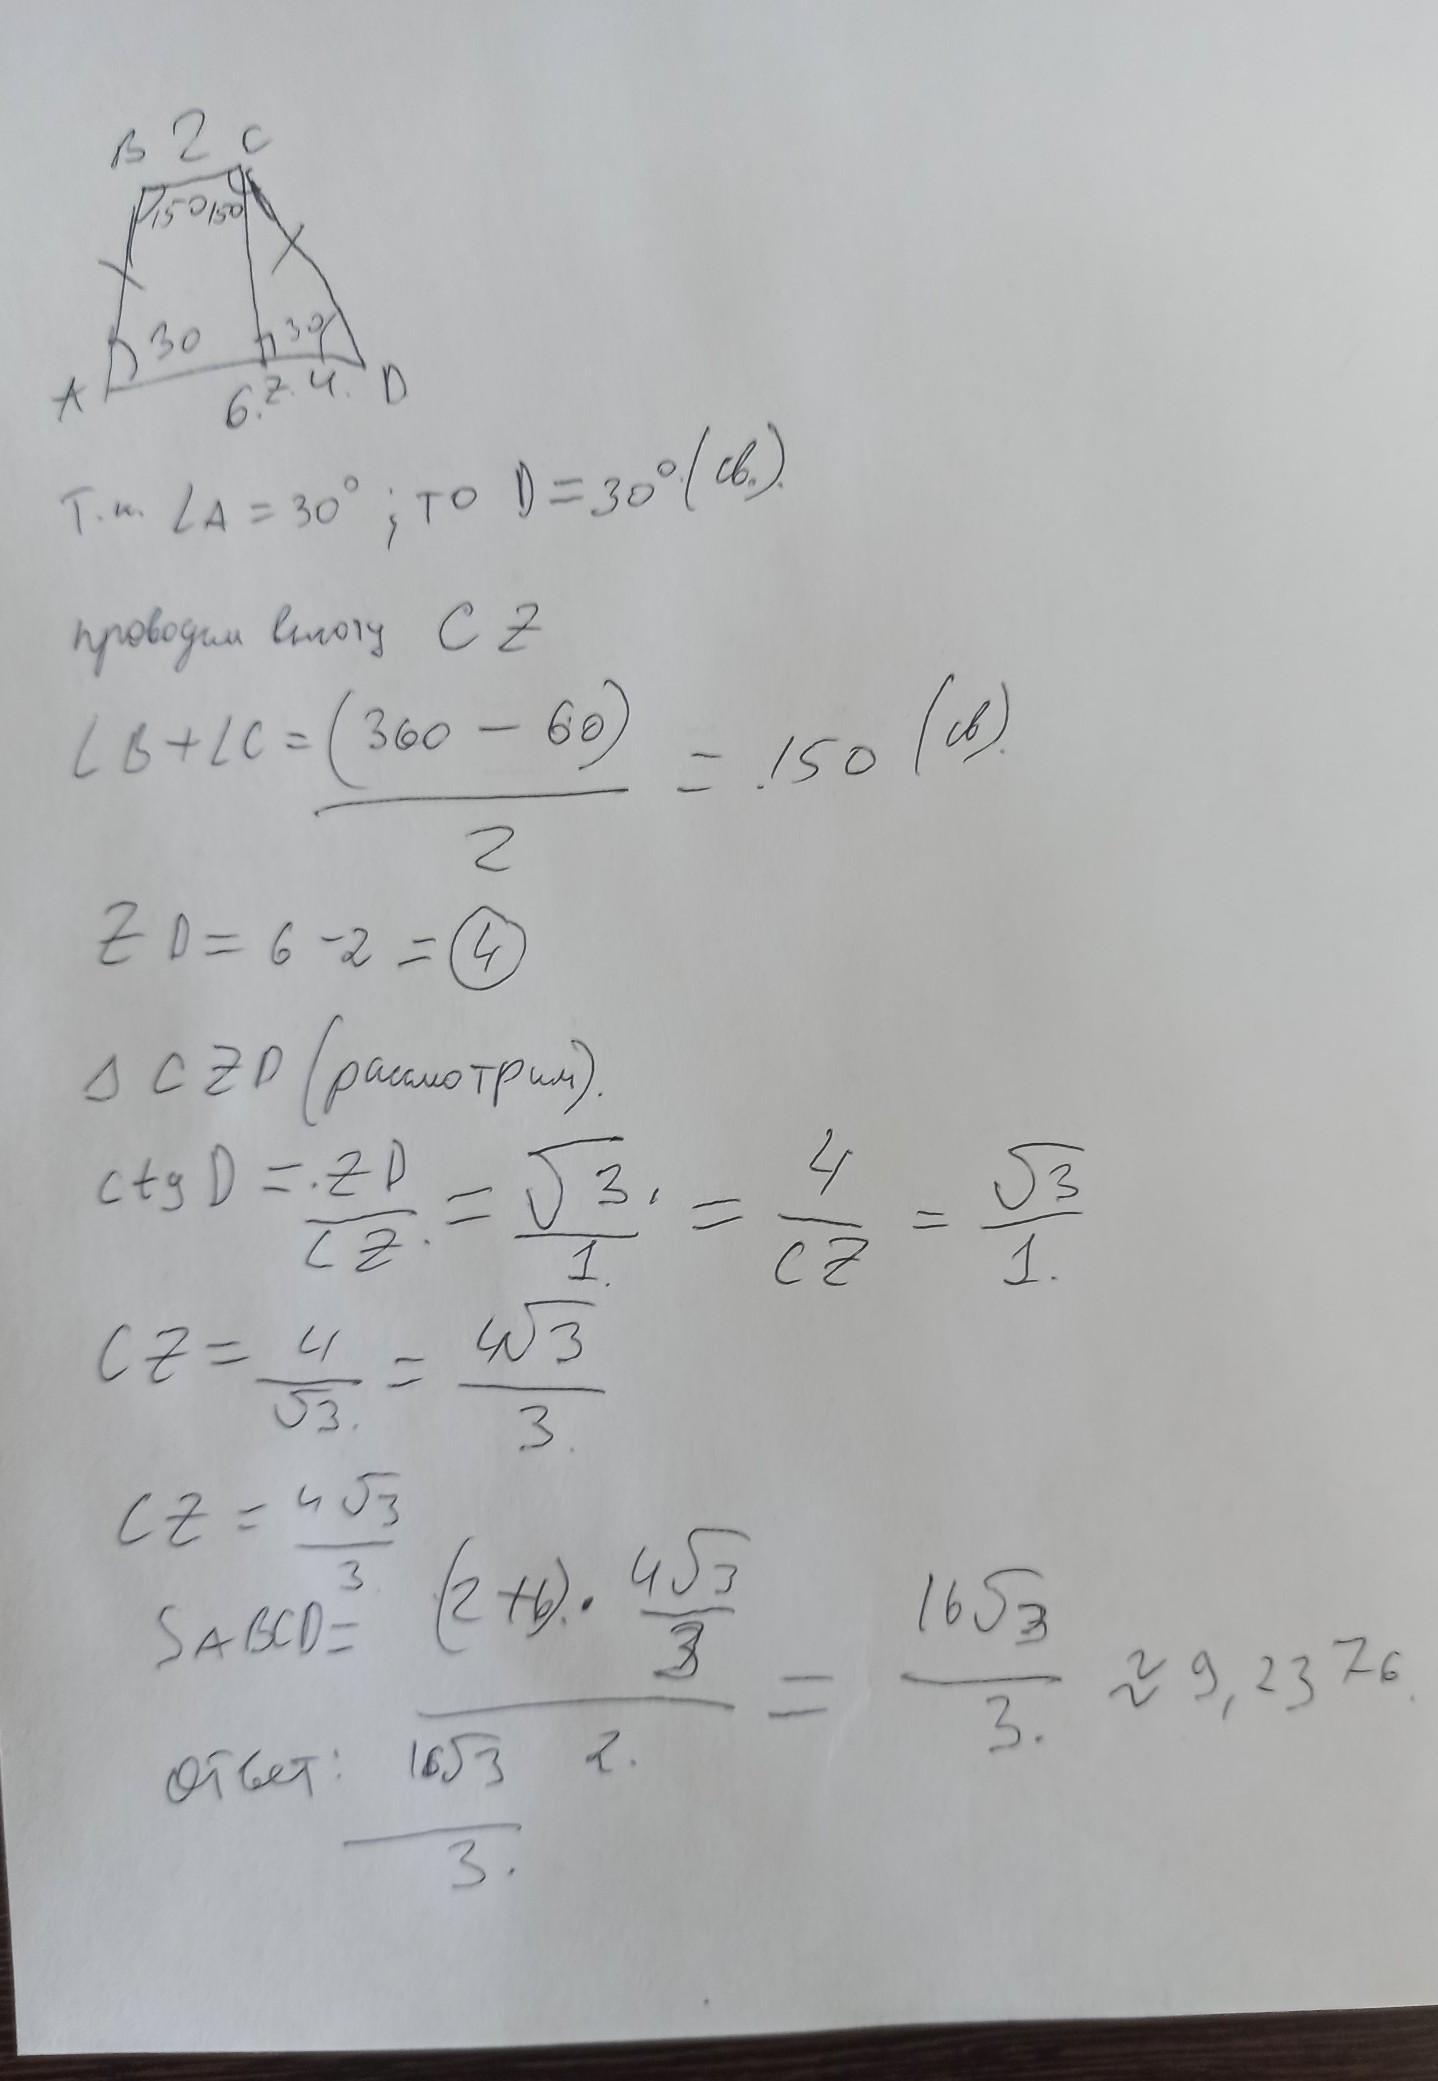 B 2 C
150 150
30 30
A 6. Z. 4. D
Т.к. ∠A = 30°; то D = 30° (св.).
проводим высоту CZ
∠B + ∠C = (360 - 60) / 2 = 150 (св).
ZD = 6 - 2 = 4
Δ CZD (рассмотрим).
ctg D = ZD / CZ = √3 / 1 = 4 / CZ = √3 / 1.
CZ = 4 / √3 = 4√3 / 3.
CZ = 4√3 / 3
SABCD = (2+6) · 4√3 / 3 / 2. = 16√3 / 3. ≈ 9,2376.
Ответ: 16√3 / 3.